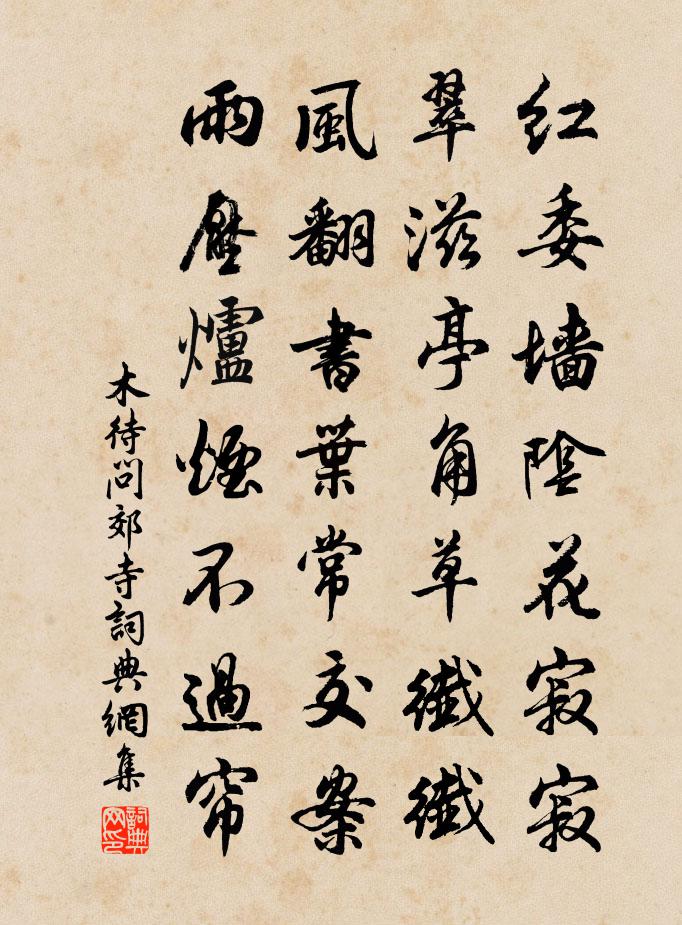 红委墙陰花寂寂
翠滋亭角草纖纖
風翻書葉常交案
雨壓爐煙不過帘
木待問郊寺詞典網集
詞典網印